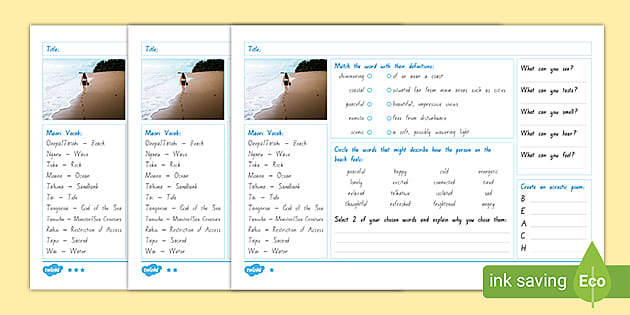 Title:
Maori Vocab:
Onepū/Tātahi – Beach
Ngaru – Wave
Toka – Rock
Moana – Ocean
Tāhuna – Sandbank
Tai – Tide
Tangaroa – God of the Sea
Taniwha – Monster/Sea Creature
Rāhui – Restriction of Access
Tapu – Sacred
Wai – Water
twinkl
Title:
Maori Vocab:
Onepū/Tātahi – Beach
Ngaru – Wave
Toka – Rock
Moana – Ocean
Tāhuna – Sandbank
Tai – Tide
Tangaroa – God of the Sea
Taniwha – Monster/Sea Creature
Rāhui – Restriction of Access
Tapu – Sacred
Wai – Water
twinkl
Title:
Maori Vocab:
Onepū/Tātahi – Beach
Ngaru – Wave
Toka – Rock
Moana – Ocean
Tāhuna – Sandbank
Tai – Tide
Tangaroa – God of the Sea
Taniwha – Monster/Sea Creature
Rāhui – Restriction of Access
Tapu – Sacred
Wai – Water
twinkl
Match the word with their definitions:
shimmering of or near a coast
coastal situated far from main areas such as cities
peaceful beautiful, impressive views
remote free from disturbance
scenic a soft, possibly wavering light
Circle the words that might describe how the person on the
beach feels:
peaceful happy cold energetic
lonely excited connected tired
relaxed talkative isolated sad
thoughtful refreshed frightened angry
Select 2 of your chosen words and explain why you chose them:
What can you see?
What can you taste?
What can you smell?
What can you hear?
What can you feel?
Create an acrostic poem:
B
E
A
C
H
ink saving Eco